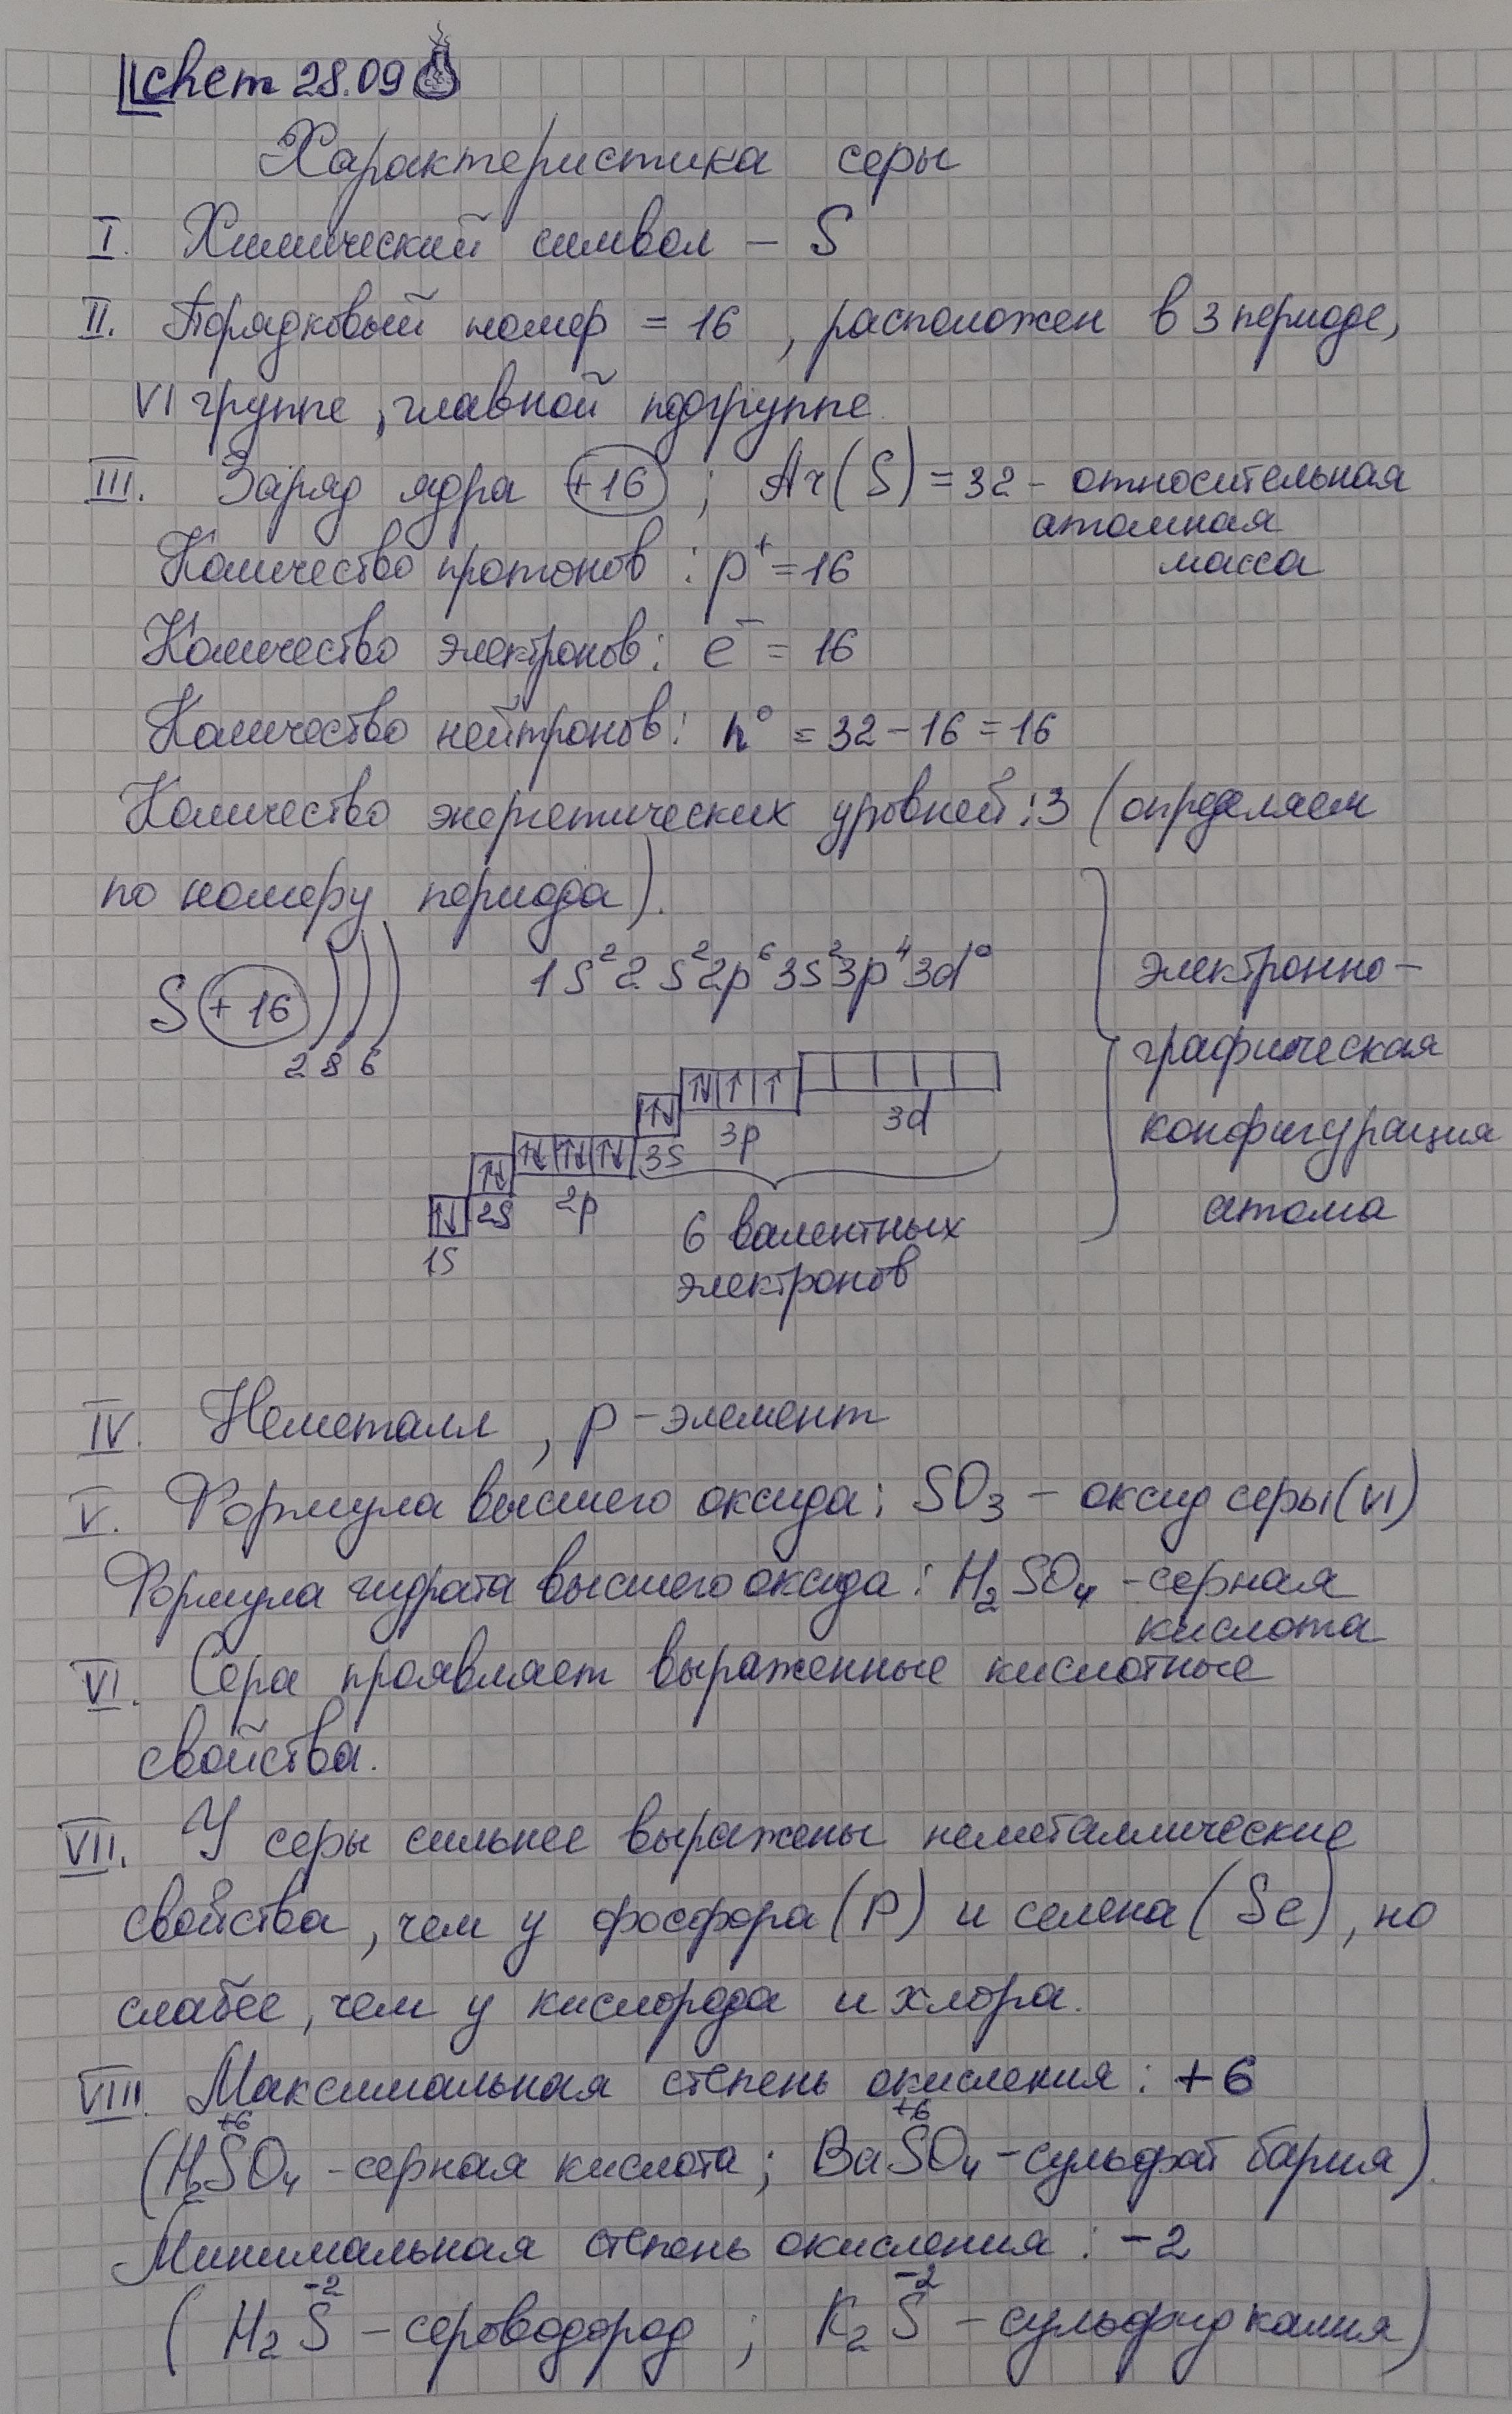 chem 28.09
Характеристика серы
I. Химический символ – S
II. Порядковый номер = 16, расположен в 3 периоде,
VI группе, главной подгруппе.
III. Заряд ядра +16; Ar(S) = 32 – относительная
атомная
масса
Количество протонов: p⁺ = 16
Количество электронов: e⁻ = 16
Количество нейтронов: n⁰ = 32 – 16 = 16
Количество энергетических уровней: 3 (определяем
по номеру периода).
S +16 ) ) ) 1s²2s²2p⁶3s²3p⁴3d⁰
2 8 6
электронно-
графическая
конфигурация
атома
↑↓ ↑ ↑
3d
↑↓
3p
↑↓ ↑↓ ↑↓ 3s
↑↓
2p
↑↓ 2s
1s
6 валентных
электронов
IV. Неметалл, p – элемент
V. Формула высшего оксида: SO₃ – оксид серы (VI)
Формула гидрата высшего оксида: H₂SO₄ – серная
кислота
VI. Сера проявляет выраженные кислотные
свойства.
VII. У серы сильнее выражены неметаллические
свойства, чем у фосфора (P) и селена (Se), но
слабее, чем у кислорода и хлора.
VIII. Максимальная степень окисления: +6
+6 +6
(H₂SO₄ – серная кислота; BaSO₄ – сульфат бария).
Минимальная степень окисления: –2
-2 -2
(H₂S – сероводород; K₂S – сульфид калия)